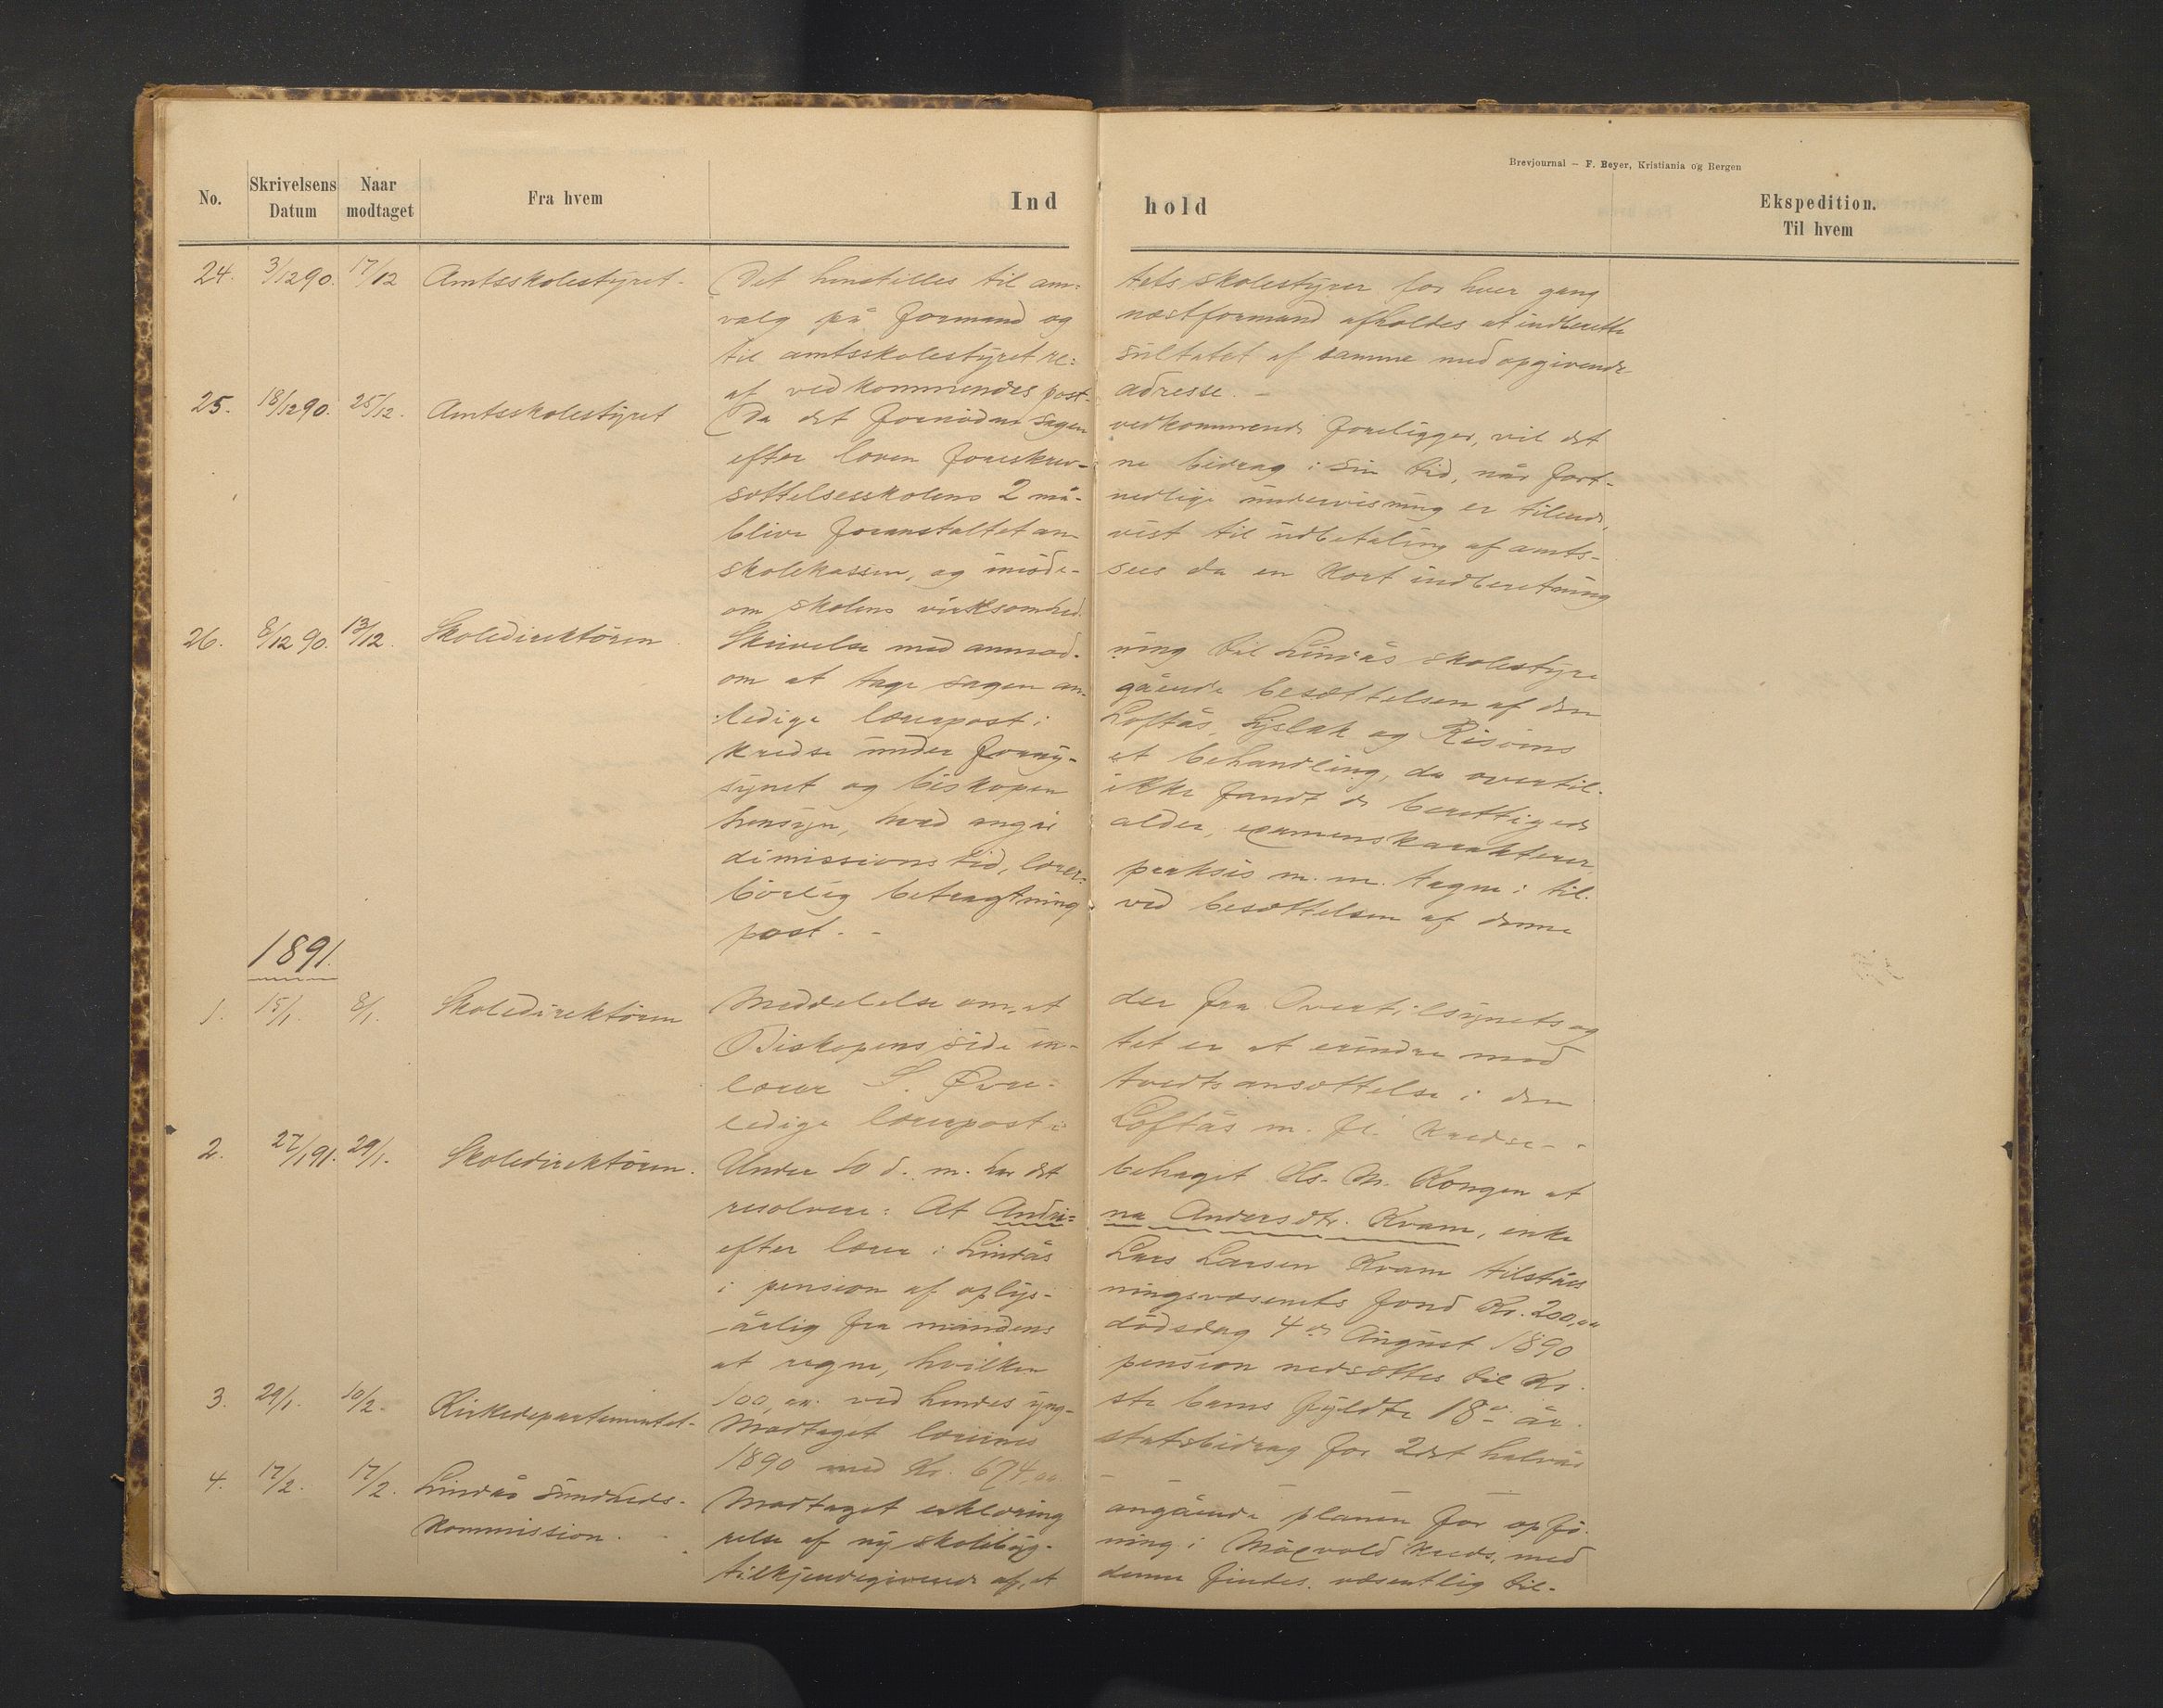 Brevjournal – F. Beyer, Kristiania og Bergen
No. Skrivelsens Datum Naar modtaget Fra hvem Ind hold Ekspedition. Til hvem
24. 3/12 90. 17/12 Amtsskolestyret. Det henstilles til am- tets skolestyrer for hver gang
valg på formand og næstformand afholdes at indberette
til amtsskolestyret re- sultatet af samme med opgivende
af vedkommendes post- adresse. –
25. 18/12 90. 25/12. Amtsskolestyret Da det fornødne sagen vedkommende foreligger, vil det
efter loven foreskrev- ne bidrag i sin tid, når fort-
sættelsesskolens 2 må- nedlige undervisning er tilende,
blive foranstaltet an- vist til udbetaling af amts-
skolekassen, og imøde- sees da en kort indberetning
om skolens virksomhed.
26. 8/12 90. 13/12. Skoledirektøren Skrivelse med anmod- ning til Lindås skolestyre
om at tage sagen an- gående besættelsen af den
ledige lærerpost i Loftås, og Risøens
kredse under forny- et behandling, da overtil-
synet og biskopen ikke fandt de berettigede
hensyn, hvad angår alder, examenskarakterer,
dimissionstid, lærer- praksis m. m. tagne i til-
børlig betragtning ved besættelsen af denne
post. –
1891.
1. 15/1. 8/1. Skoledirektøren Meddelelse om, at der fra Overtilsynets og
Biskopens side in- tet er at erindre mod
lærer S. Øvre- tvedts ansættelse i den
ledige lærerpost i Loftås m. fl. kredse. –
2. 27/1 91. 29/1. Skoledirektøren. Under 10 d. m. har det behaget Hs. M. Kongen at
resolvere: At Andri- na Andersdtr. Kvam, enke
efter lærer i Lindås Lars Larsen Kvam tilståes
i pension af oplys- ningsvæsenets fond Kr. 200,00
årlig fra mandens dødsdag 4de August 1890
at regne, hvilken pension nedsættes til Kr.
100,00. ved hendes yng- ste barns fyldte 18de år.
3. 29/1. 10/2. Kirkedepartementet. Modtaget lærernes statsbidrag for 2det halvår
1890 med Kr. 674,00
4. 17/2. 17/2. Lindås sundheds- Modtaget erklæring angående planen for opfø-
kommission. relse af ny skolebyg- ning i Kreds, med
tilkjendegivende af, at denne findes væsentlig til-